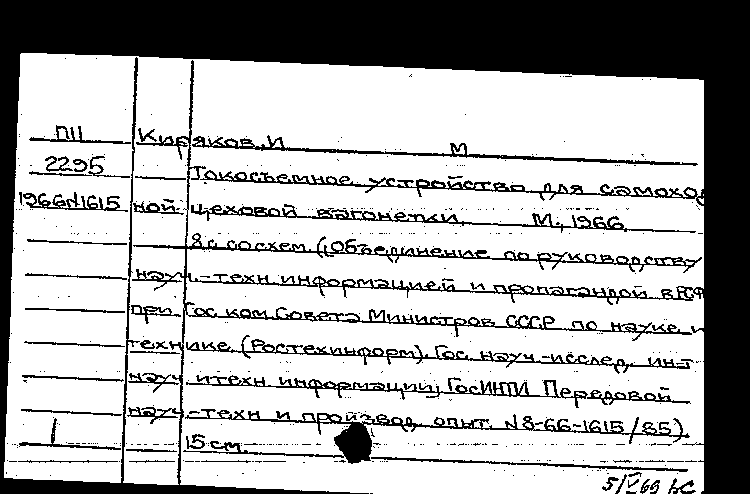 П11 Киряков, И М
2295 Токосъемное устройство для самоход
1966г№1615 ной цеховой вагонетки. М., 1966.
8с. со схем. (Объединение по руководству
науч.-техн информацией и пропагандой в РСФ
при Гос ком Совета Министров СССР по науке и
технике. (Ростехинформ). Гос. науч-исслед, ин-т
науч итехн информации, ГосИНТИ Передовой
науч-техн и производ опыт. N8-66-1615/85).
1 15 см.
5/V 69